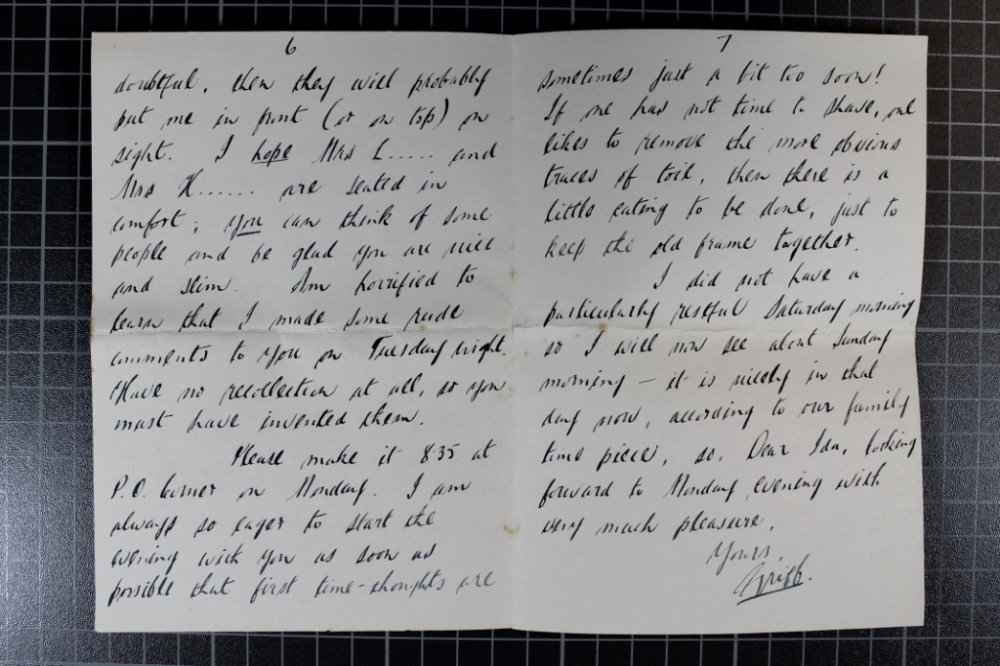 6
doubtful, then they will probably
put me in front (or on top) on
sight. I hope Mrs L..... and
Mrs K...... are seated in
comfort; you can think of some
people and be glad you are nice
and slim. Am horrified to
learn that I made some rude
comments to you on Tuesday night.
Have no recollection at all, so you
must have invented them.
Please make it 8.35 at
P.O. Corner on Monday. I am
always so eager to start the
evening with you as soon as
possible that first time-thoughts are
7
sometimes just a bit too soon!
If one has not time to shave, one
likes to remove the more obvious
traces of toil, then there is a
little eating to be done, just to
keep the old frame together.
I did not have a
particularly restful Saturday morning
so I will now see about Sunday
morning – it is nicely in that
day now, according to our family
time piece, so, Dear Ida, looking
forward to Monday evening with
very much pleasure,
Yours,